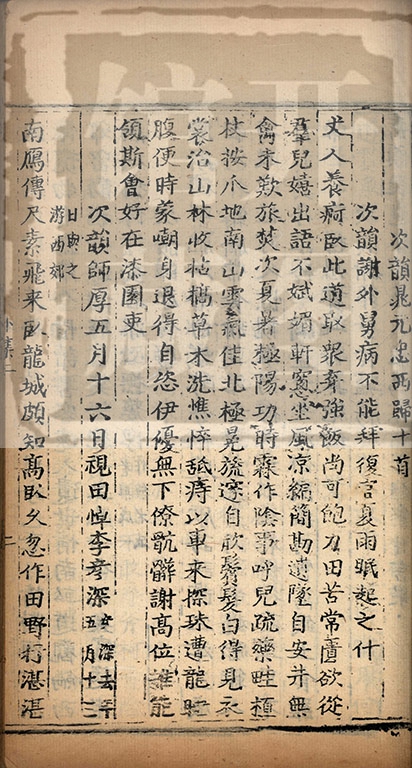 次韻晁元忠西歸十首
次韻謝外舅病不能拜復官夏雨眠起之什
丈人養痾卧此道取衆棄強飯尚可飽力田苦常匱欲從
羣兒嬉出語不娬媚軒窻坐風凉編簡勘遺墜自安井無
禽未歎旅焚次夏暑極陽功時霖作陰事呼兒疏藥畦植
杖按爪地南山雲氣佳北極冕旒邃自欣鬢髮白得見衣
裳治山林收枯槁草木洗憔悴舐痔以車來探珠遭龍睡
腹便時蒙嘲身退得自恣伊優無下僚骯髒謝高位誰能
領斯會好在漆園吏
次韻師厚五月十六日視田悼李彦深彦深去年五月十三
日與之游西郊
南鴈傳尺素飛来卧龍城頗知髙卧久忽作田野行湛湛
外集二
二